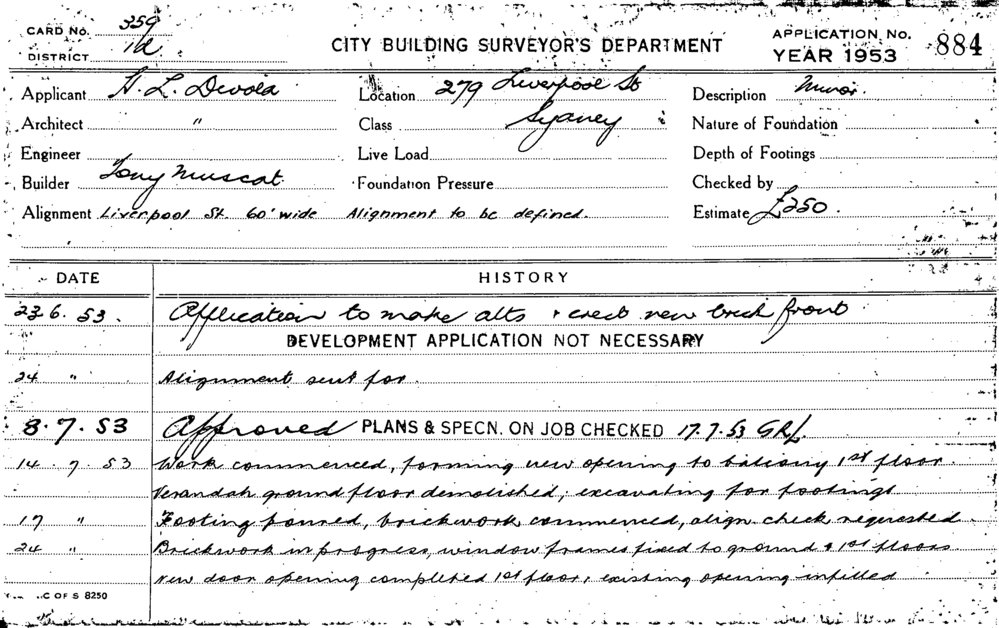 CARD No. 359
DISTRICT 1a
CITY BUILDING SURVEYOR'S DEPARTMENT
APPLICATION No. 884
YEAR 1953
Applicant H. L. Devola Location 279 Liverpool St Description Minor.
Architect " Class Sydney Nature of Foundation
Engineer Live Load Depth of Footings
Builder Tony Muscat. Foundation Pressure Checked by
Alignment Liverpool St. 60' wide Alignment to be defined. Estimate £250.
DATE HISTORY
23 6. 53. Application to make alts & erect new brick front
DEVELOPMENT APPLICATION NOT NECESSARY
24 " Alignment sent for.
8. 7. 53 Approved PLANS & SPECN. ON JOB CHECKED 17.7.53 GRL.
14. 7. 53 Work commenced, forming new opening to balcony 1st floor.
Verandah ground floor demolished, excavating for footings
17 " Footing poured, brickwork commenced, align. check requested.
24 " Brickwork in progress, window frames fixed to ground & 1st floors
New door opening completed 1st floor, existing opening infilled
C OF S 8250